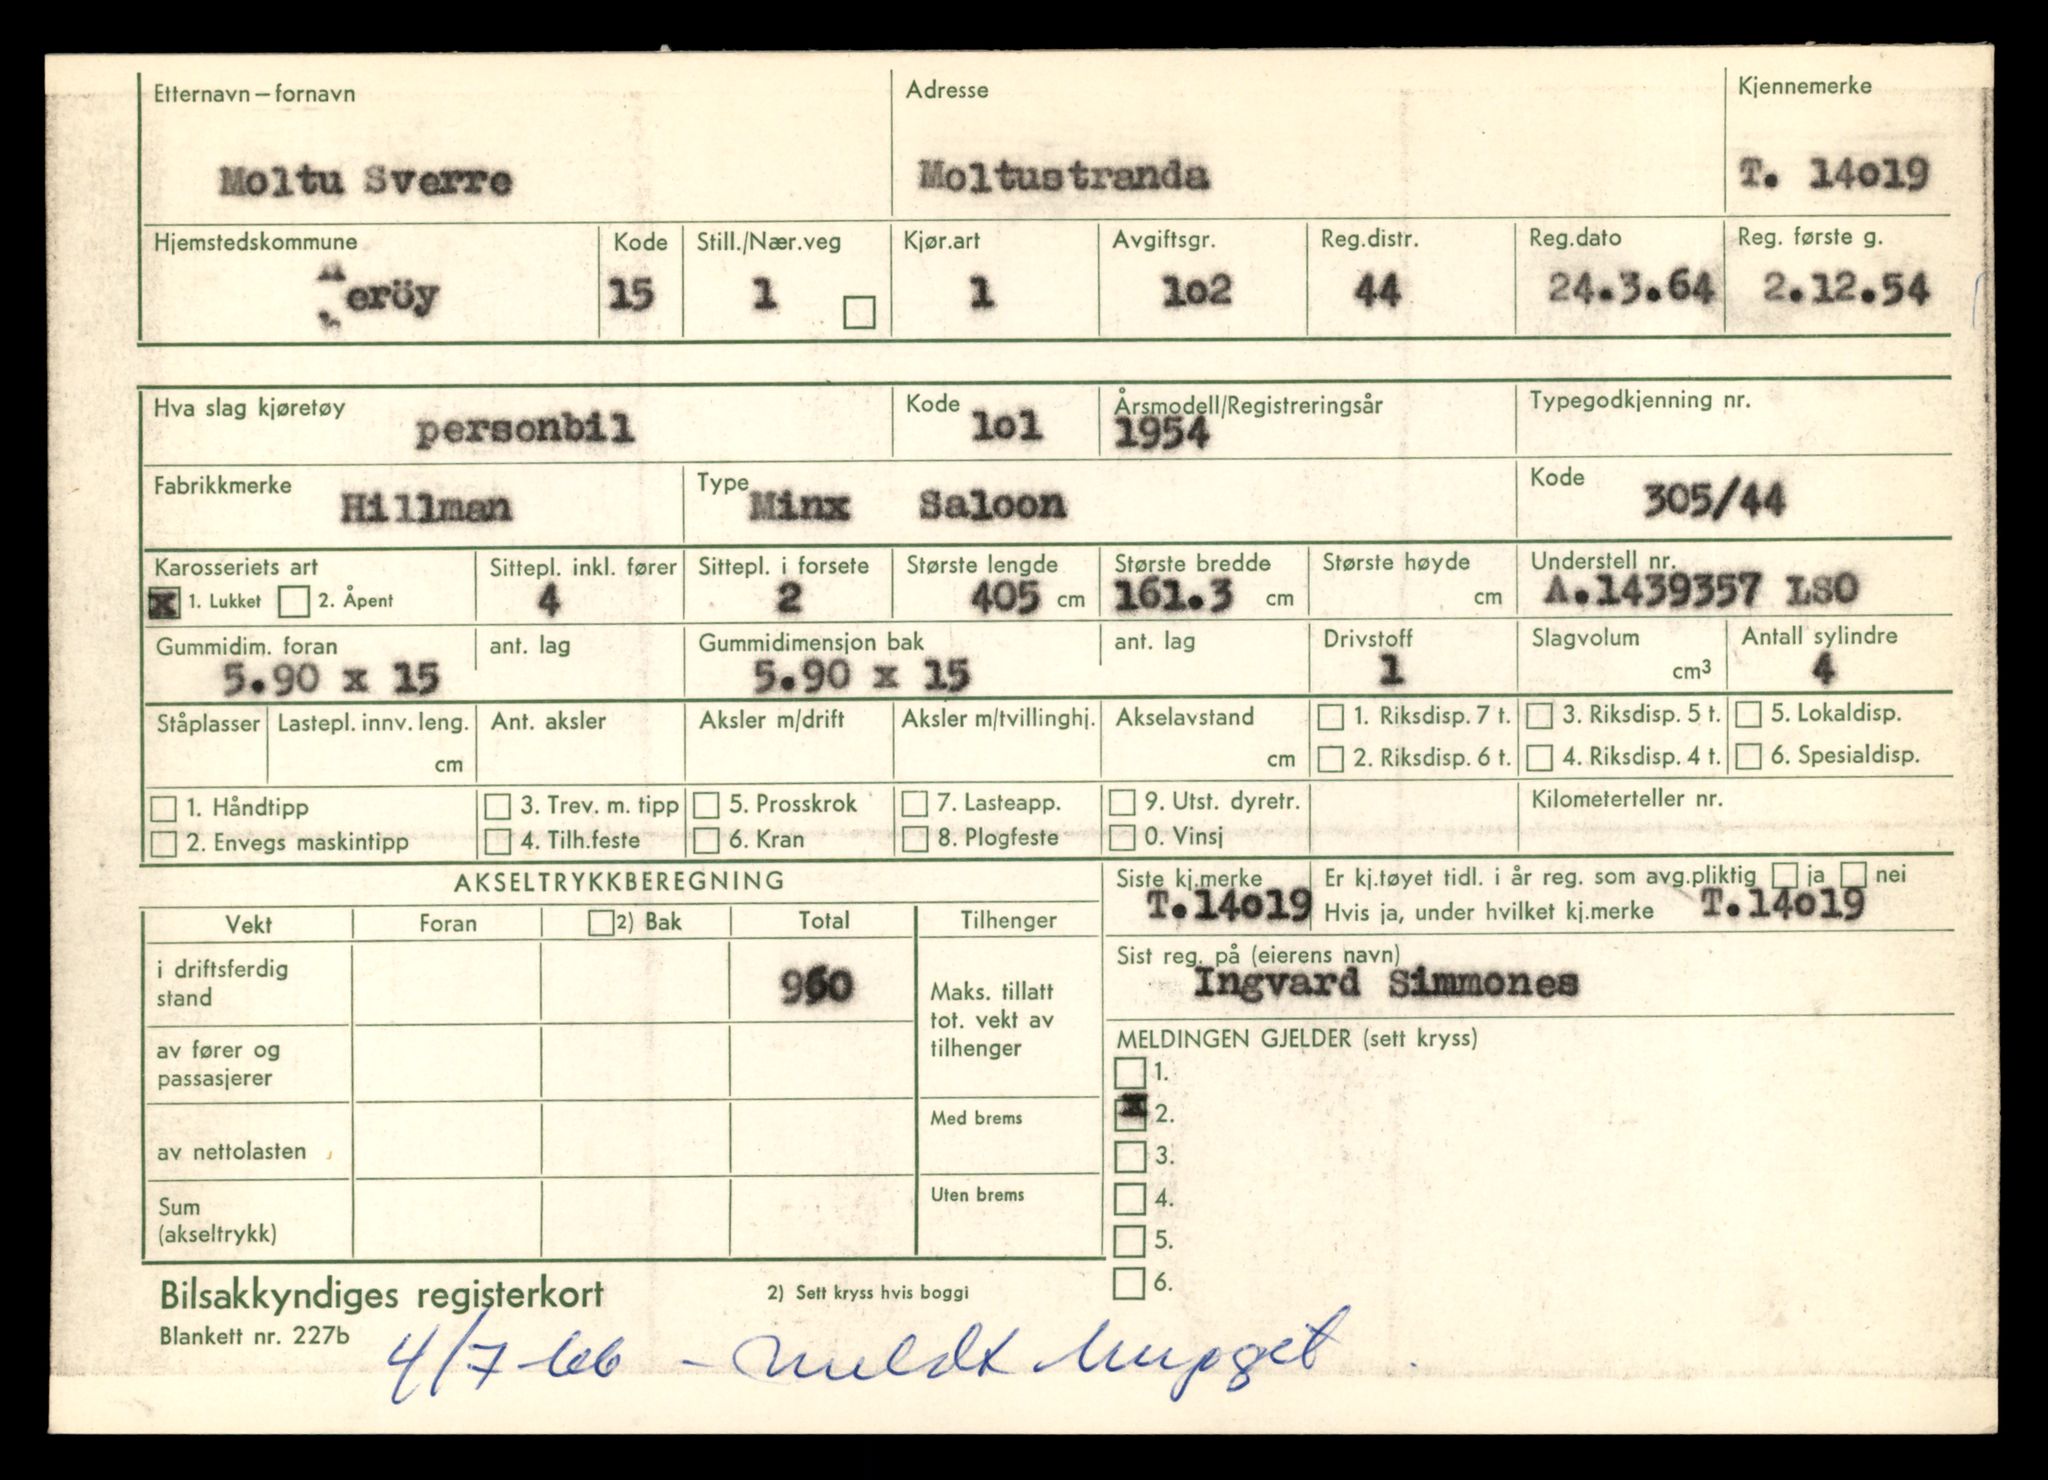 Etternavn – fornavn Adresse Kjennemerke
Moltu Sverre Moltustranda T. 14o19
Hjemstedskommune Kode Still./Nær.veg Kjør.art Avgiftsgr. Reg.distr. Reg.dato Reg. første g.
eröy 15 1 1 1o2 44 24.3.64 2.12.54
Hva slag kjøretøy Kode Årsmodell/Registreringsår Typegodkjenning nr.
personbil 1o1 1954
Fabrikkmerke Type Kode
Hillman Minx Saloon 305/44
Karosseriets art Sittepl. inkl. fører Sittepl. i forsete Største lengde Største bredde Største høyde Understell nr.
x 1. Lukket 2. Åpent 4 2 405 cm 161.3 cm cm A.1439357 LSO
Gummidim. foran ant. lag Gummidimensjon bak ant. lag Drivstoff Slagvolum Antall sylindre
5.90 x 15 5.90 x 15 1 cm³ 4
Ståplasser Lastepl. innv. leng. Ant. aksler Aksler m/drift Aksler m/tvillinghj. Akselavstand 1. Riksdisp. 7 t. 3. Riksdisp. 5 t. 5. Lokaldisp.
cm cm 2. Riksdisp. 6 t. 4. Riksdisp. 4 t. 6. Spesialdisp.
1. Håndtipp 3. Trev. m. tipp 5. Prosskrok 7. Lasteapp. 9. Utst. dyretr. Kilometerteller nr.
2. Envegs maskintipp 4. Tilh.feste 6. Kran 8. Plogfeste 0. Vinsj
AKSELTRYKKBEREGNING Siste kj.merke Er kj.tøyet tidl. i år reg. som avg.pliktig ja nei
T.14o19 Hvis ja, under hvilket kj.merke T.14o19
Vekt Foran 2) Bak Total Tilhenger
Sist reg. på (eierens navn)
Ingvard Simmones
i driftsferdig
stand 960
Maks. tillatt
tot. vekt av
tilhenger
MELDINGEN GJELDER (sett kryss)
av fører og
passasjerer
1.
x 2.
Med brems
av nettolasten 3.
4.
Uten brems
Sum
(akseltrykk) 5.
6.
Bilsakkyndiges registerkort 2) Sett kryss hvis boggi
Blankett nr. 227b
4/7-66 - meldt hugget